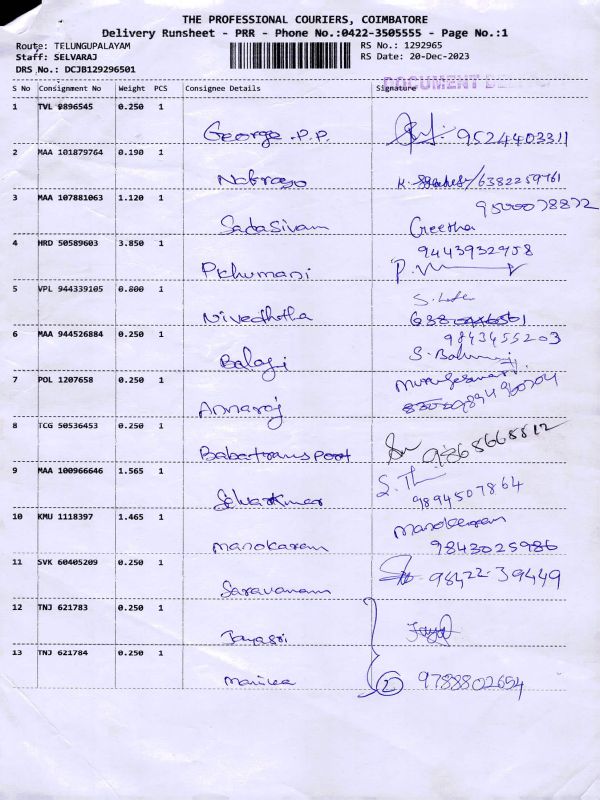 THE PROFESSIONAL COURIERS, COIMBATORE
Delivery Runsheet - PRR - Phone No.:0422-3505555 - Page No.:1
Route: TELUNGUPALAYAM RS No.: 1292965
Staff: SELVARAJ RS Date: 20-Dec-2023
DRS No.: DCJB129296501
DOCUMENT
S No Consignment No Weight PCS Consignee Details Signature
1 TVL 9896545 0.250 1
George .P.P. 9524403311
2 MAA 101879764 0.190 1
K. /6382259761
3 MAA 107881063 1.120 1 9500078872
Sadasivam Geetha
4 HRD 50589603 3.850 1 9443932958
P.Khumani
5 VPL 944339105 0.800 1
Nivedhitha
6 MAA 944526884 0.250 1 9843455203
Balaji S.
7 POL 1207658 0.250 1
Annaraj
8 TCG 50536453 0.250 1
Babatransport 9865668812
9 MAA 100966646 1.565 1 S. Th
Selvarkumar 9894507864
10 KMU 1118397 1.465 1 Manokaram
Manokaram 9843025986
11 SVK 60405209 0.250 1 98422-39449
Saravanam
12 TNJ 621783 0.250 1
Jayasri
13 TNJ 621784 0.250 1
2 9788802654